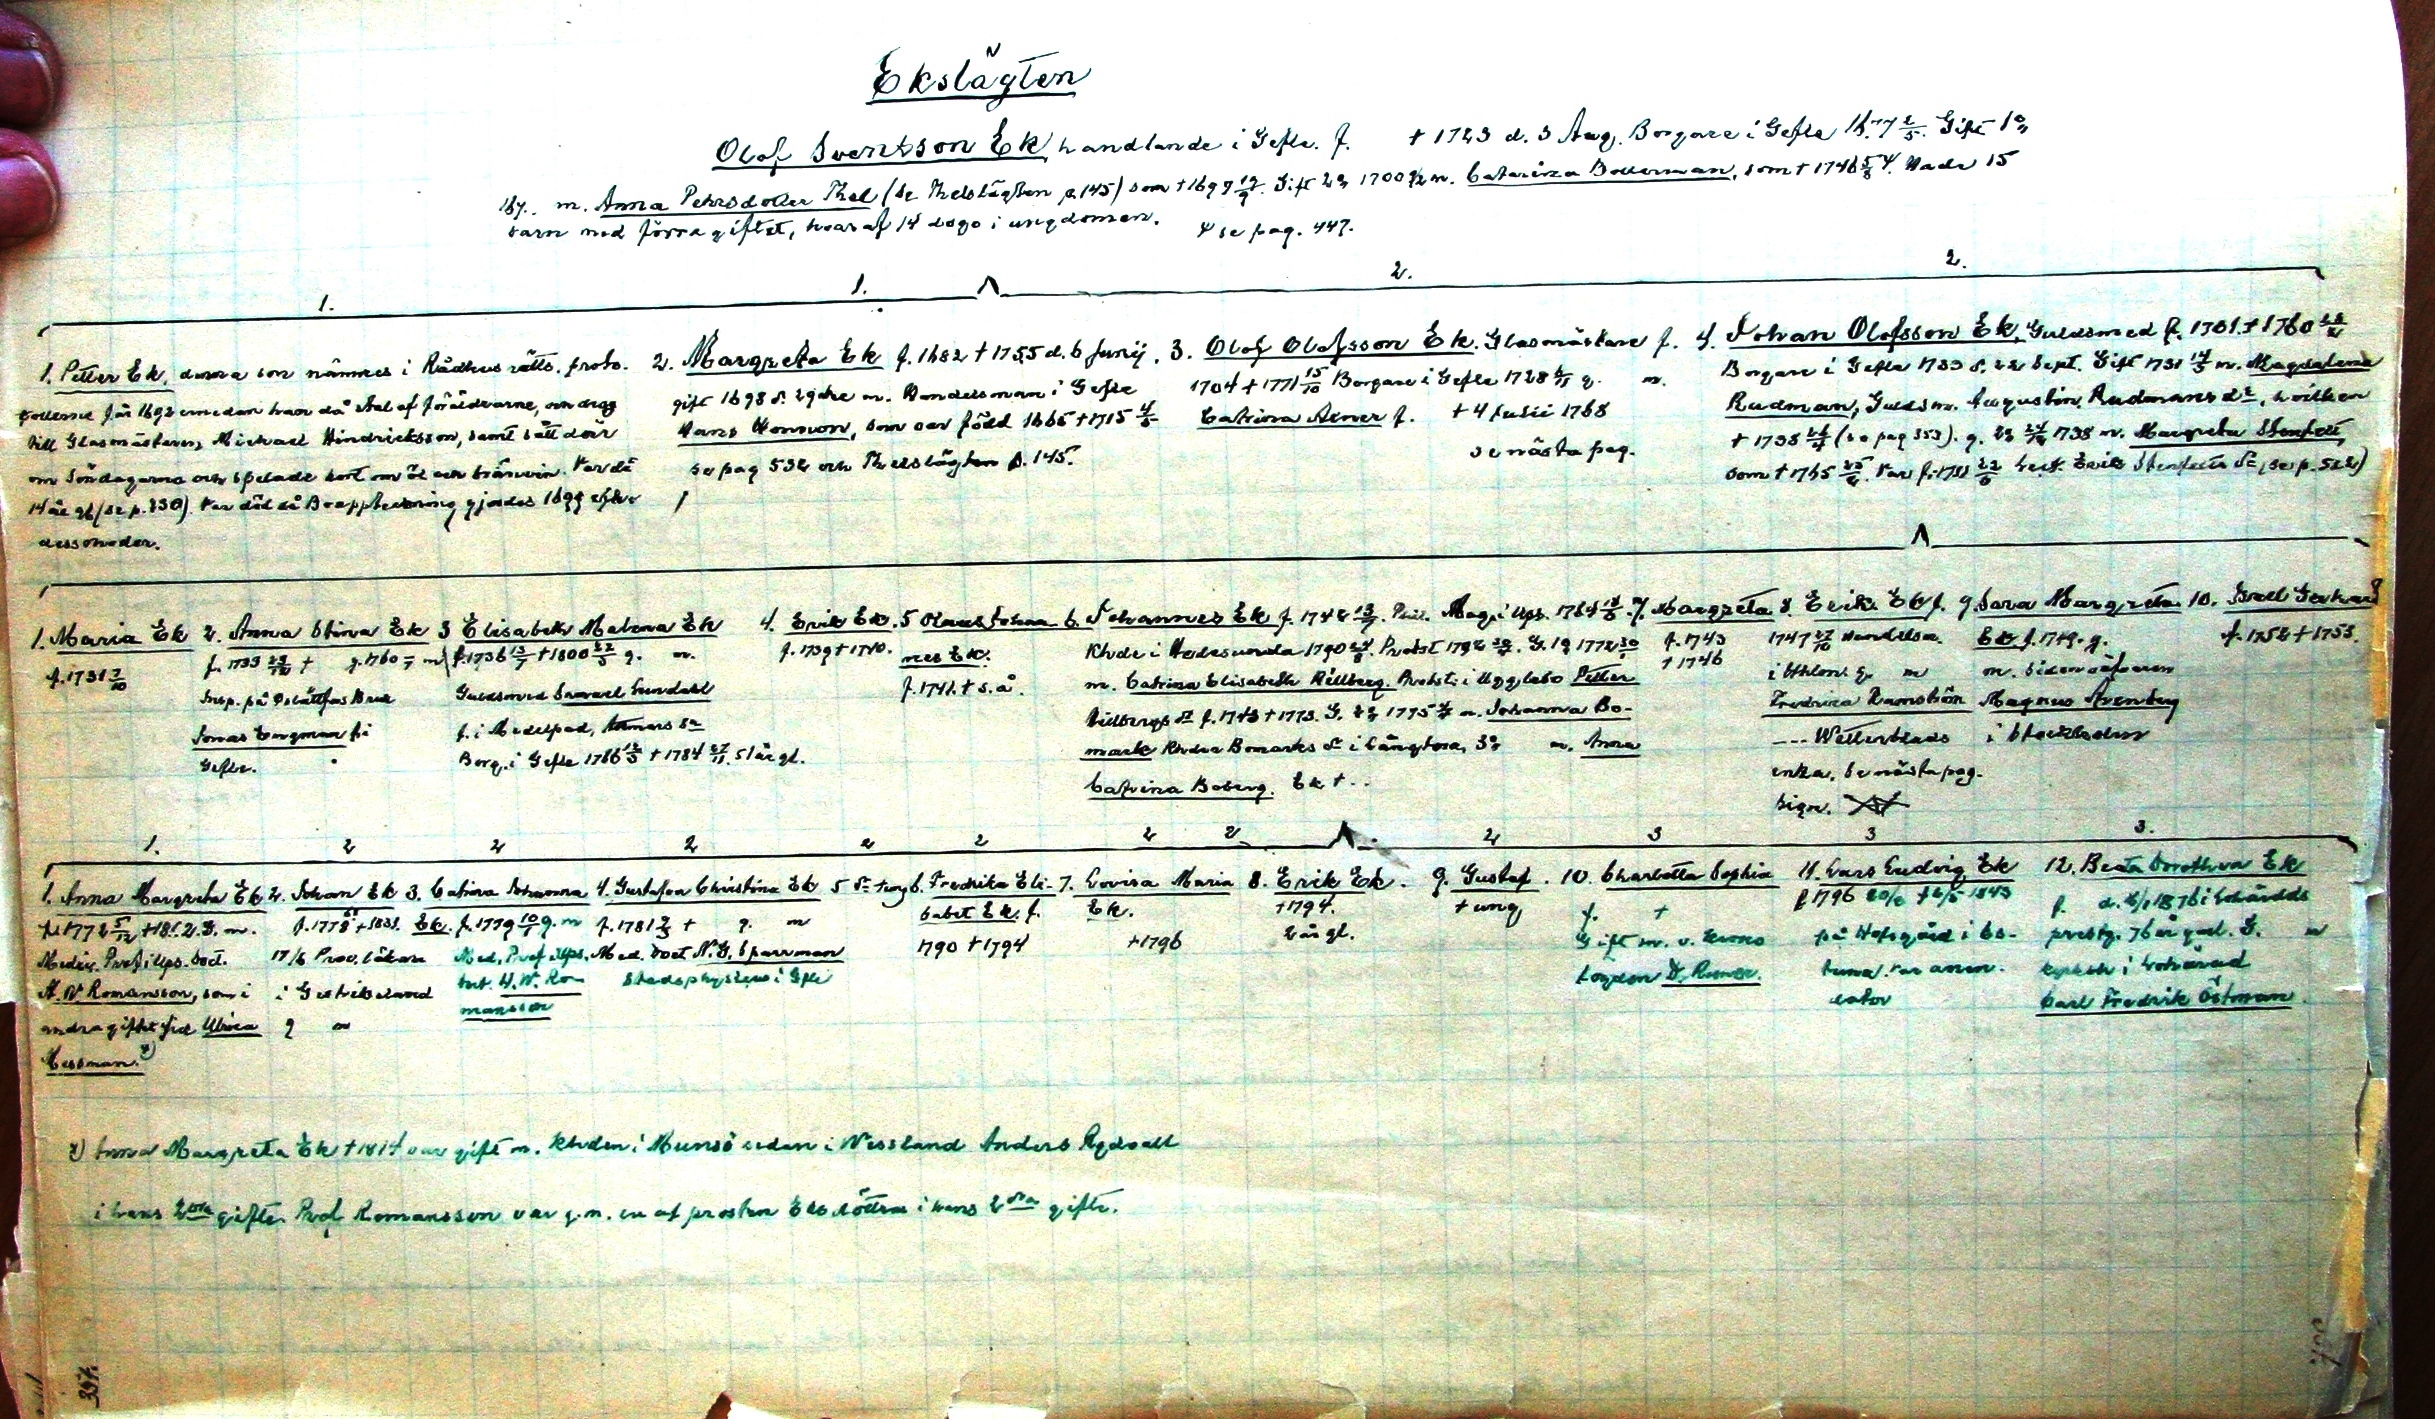 Ekslägten
Olof Svensson Ek, handlande i Gefle. f. † 1723 d. 3 Aug. Borgare i Gefle 1677 2/5. Gift 1o,
167.. m. Anna Pehrsdotter Thel (se Thelslägten p. 145) som † 1697 19/9. Gift 2o, 1700 m. Catarina Bollerman, som † 1746 5/8. Hade 15
barn med förra giftet, hvaraf 14 dogo i ungdomen. se pag. 447.
1. 1. 2. 2.
1. Petter Ek, denna son nämnes i Rådhus rätts. proto-
kollerne för 1692 emedan han då stal af föräldrarne, om drog
till Glasmästaren, Michael Hindricksson, samt satt där
om Söndagarna och spelade kort om öl och bränvin. Var då
14 år gl (se p. 230). Var död då Bouppteckning gjordes 1699 efter
dess moder.
2. Margreta Ek f. 1682 † 1755 d. 6 Junij.
gift 1698 d. 29 m. Handelsman i Gefle
Hans Hansson, som var född 1665 † 1715
se pag 532 och Thelslägten p. 145.
3. Olof Olofsson Ek. Glasmästare f.
1704 † 1771 15/10 Borgare i Gefle 1728 g. m.
Catrina Asner f. † 4 Julii 1768
se nästa pag.
4. Johan Olofsson Ek, Guldsmed f. 1701 † 1760
Borgare i Gefle 1733 d. 22 Sept. Gift 1731 m. Magdalena
Rudman, Guldsm. Augustin Rudmans dr, hvilken
† 1738 (se pag 353). g. 2o 1738 m. Margreta Stenfelt,
som † 1765. Var f. 1711 Erik Stenfelts dr (se p. 522)
1. Maria Ek
f. 1731 7/10
2. Anna Stina Ek
f. 1733 † g. 1760 m
Insp. på Bruk
Jonas Bergman fr.
Gefle.
3 Elisabeth Malena Ek
f. 1736 13/7 † 1800 22/3 g. m.
Guldsmed Samuel Lundahl
f. i Medelpad,
Borg. i Gefle 1766 † 1784 27/11. 51 år gl.
4. Erik Ek.
f. 1739 † 1740.
5 Olaus Johan-
nes Ek.
f. 1741. † s. å.
6. Johannes Ek f. 1742 13/7. Phil. Mag. i Ups. 1764
Khde i Hedesunda 1790. Probst 1792. G. 1o 1772
m. Catrina Elisabeth Hillberg. Probst. i Ugglebo Petter
Hillbergs dr f. 1743 † 1773. G. 2o 1775 m. Johanna Bo-
mark Khdra Bomarks dr i Långtora, 3o m. Anna
Catrina Boberg. Ek † ..
7. Margreta
f. 1743
† 1746
8. Erik Ek f.
1747 27/10 Handelsm.
i Sthlm. g. m
Fredrica Ramström
--- Wetterblads
enka. Se nästa pag.
sign.
9. Sara Margreta
Ek f. 1749. g.
m. Sidenväfvaren
Magnus Arenberg
i Stockholm
10. Israel Gerhard
f. 1752 † 1753.
1. 2 2 2 2 2 2 2 2 3 3 3.
1. Anna Margreta Ek
f. 1772 5/12 † 1812. G. m.
Medic. Prof i Ups. Doct.
A. W Romansson, som i
andra giftet fick Ulrica
Messman. x)
2. Johan Ek
f. 1778 † 1831.
17/6 Prov. läkare
i Gestrikeland
g m
3. Catrina Johanna
Ek. f. 1779 10/7 g. m
Med. Prof. Ups.
A. W. Ro-
mansson
4. Gustafva Christina Ek
f. 1781 † g. m
Med. Doct N. G. Sparrman
Stadsphysicus i Gfle
5 dr † ung
6. Fredrika Eli-
sabet Ek. f.
1790 † 1794
7. Lovisa Maria
Ek.
† 1796
8. Erik Ek.
† 1794.
2 år gl.
9. Gustaf.
† ung
10. Charlotta Sophia
f. †
Gift m. v. Krono
Logden D. Runer.
11. Lars Ludvig Ek
f 1796 20/6 † 2/5 1843
på Hofsgård i Es-
tuna. Var arren-
dator
12. Beata Dorothea Ek
f. d. 1876 i Lohärads
prestg. 76 år gml. G. m
kyrkoh i Lohärad
Carl Fredrik Östman.
x) Anna Margreta Ek † 1814 var gift m. Khden i Munsö sedan i Wessland Anders Rydvall
i hans 2dra gifte. Prof Romansson var g. m. en af prosten Eks döttrar i hans 2dra gifte.
397.